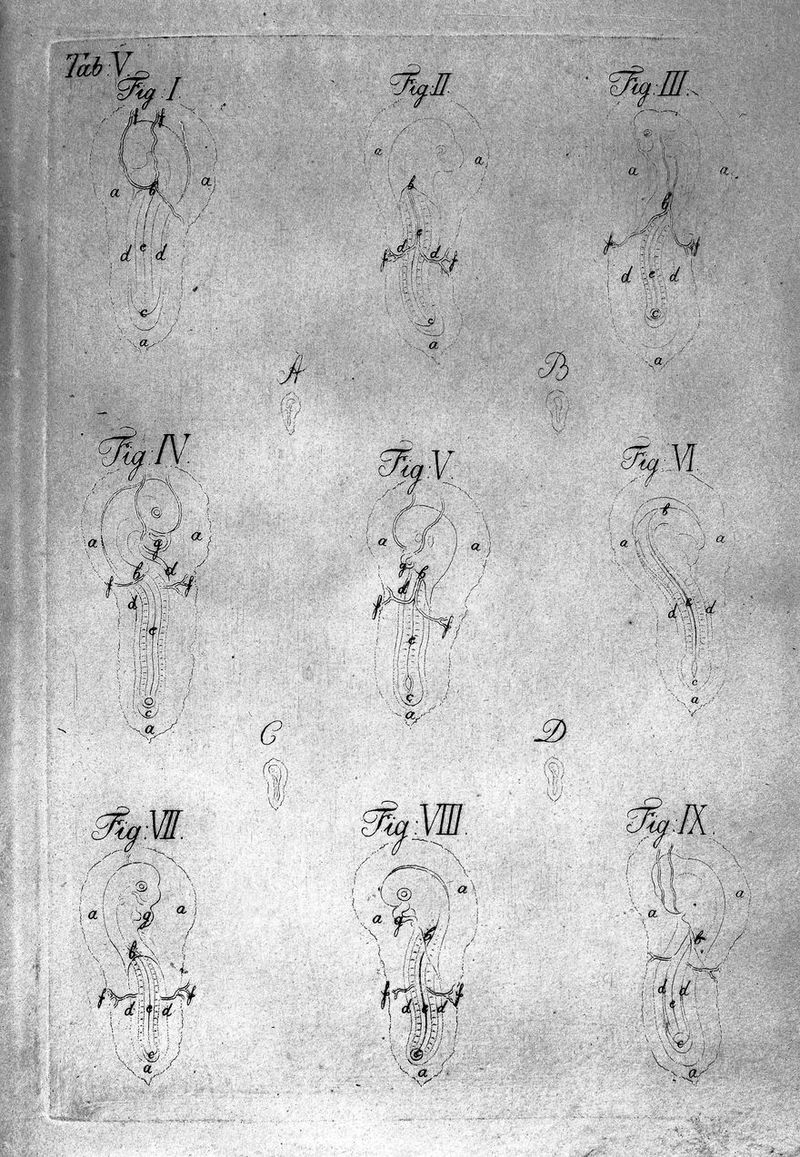 Tab: V.
Fig: I.
f f
a b a
d e d
c
a
Fig: II.
a a
b
e
d d
f f
c
a
Fig: III.
a a
b
f f
d e d
c
a
A
B
Fig: IV.
a g a
b d
f f
d
e
c
a
Fig: V.
a a
g b
d
f f
e
c
a
Fig: VI.
b
a a
e
d d
c
a
C
D
Fig: VII.
a g a
b
f f
d e d
c
a
Fig: VIII.
a
a g
b
f f
d e d
c
a
Fig: IX.
a
a
b
d d
e
c
a